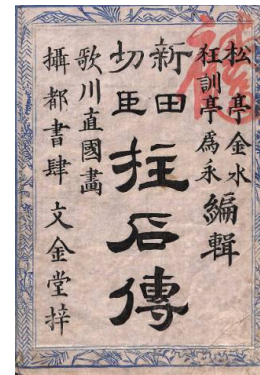 松亭金水
狂訓亭為永
編輯
新田
功臣
柱石傳
歌川直國畫
攝都書肆 文金堂梓